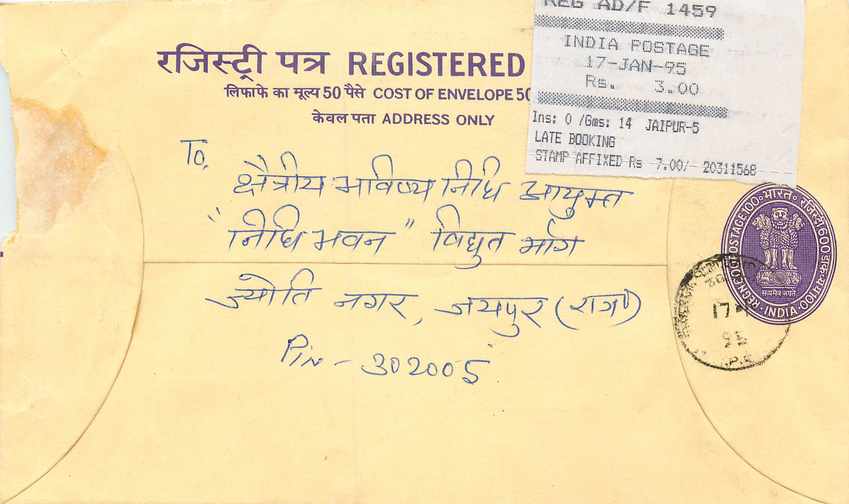 REG AD/F 1459
INDIA POSTAGE
17-JAN-95
Rs. 3.00
Ins: 0 /Gms: 14 JAIPUR-5
LATE BOOKING
STAMP AFFIXED Rs 7.00/- 20311568
रजिस्ट्री पत्र REGISTERED
लिफाफे का मूल्य 50 पैसे COST OF ENVELOPE 50
केवल पता ADDRESS ONLY
To,
क्षेत्रीय भविष्य निधि आयुक्त
"निधि भवन" विधुत मार्ग
ज्योति नगर, जयपुर (राज०)
Pin - 302005
भारत रजिस्ट्री 600 डाक-व्यय 100 INDIA REGN 600 POSTAGE 100
सत्यमेव जयते
17
95